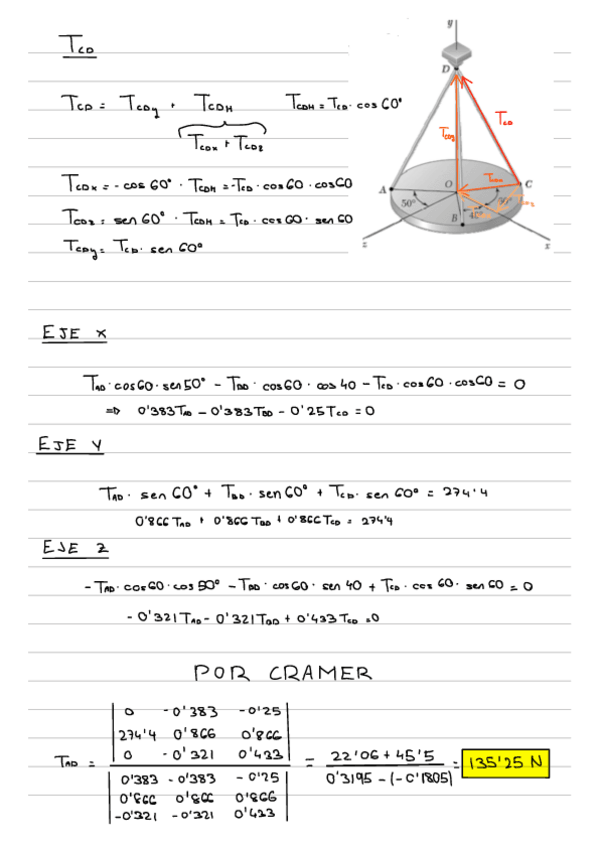 T_CD
T_CD = T_CDy + T_CDH T_CDH = T_CD · cos 60°
T_CDx + T_CDz
T_CDx = - cos 60° · T_CDH = -T_CD · cos 60 · cos 60
T_CDz = sen 60° · T_CDH = T_CD · cos 60 · sen 60
T_CDy = T_CD · sen 60°
y
D
T_CD
T_CDy
A
O
C
50°
B
z
x
EJE X
T_AD · cos 60 · sen 50° - T_BD · cos 60 · cos 40 - T_CD · cos 60 · cos 60 = 0
⇒ 0'383 T_AD - 0'383 T_BD - 0'25 T_CD = 0
EJE Y
T_AD · sen 60° + T_BD · sen 60° + T_CD · sen 60° = 274'4
0'866 T_AD + 0'866 T_BD + 0'866 T_CD = 274'4
EJE Z
- T_AD · cos 60 · cos 50° - T_BD · cos 60 · sen 40 + T_CD · cos 60 · sen 60 = 0
- 0'321 T_AD - 0'321 T_BD + 0'433 T_CD = 0
POR CRAMER
0 -0'383 -0'25
274'4 0'866 0'866
0 -0'321 0'433
T_AD = = 22'06 + 45'5 / 0'3195 - (-0'1805) = 135'25 N
0'383 -0'383 -0'25
0'866 0'866 0'866
-0'321 -0'321 0'433